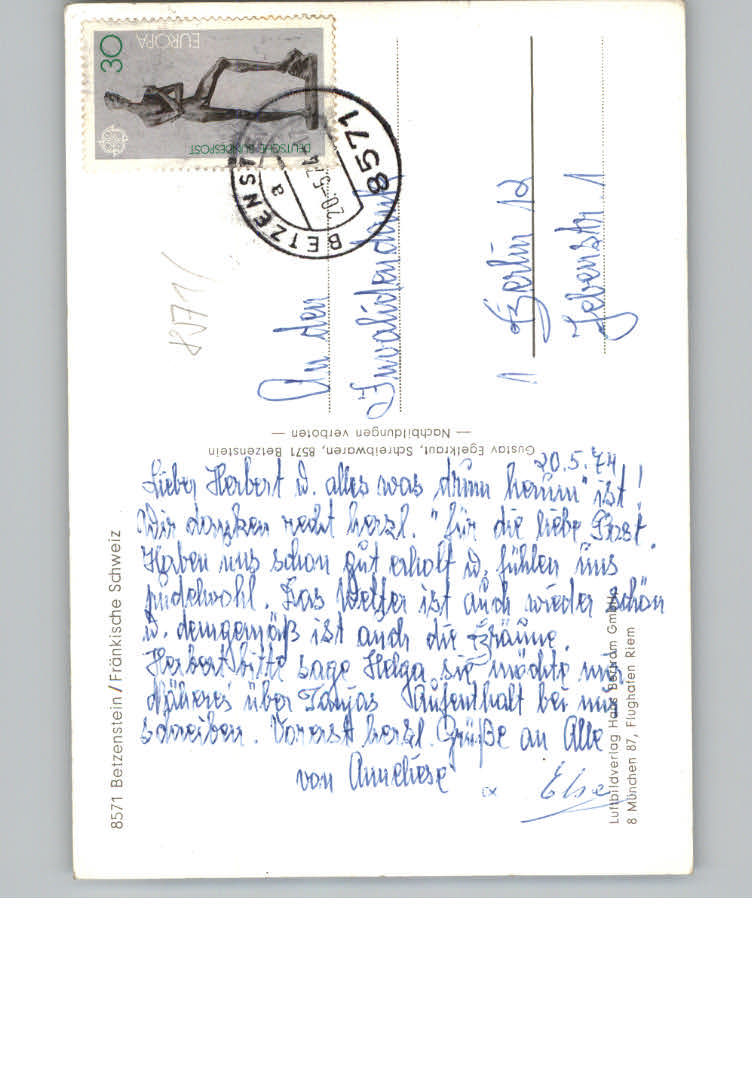 EUROPA
30
DEUTSCHE BUNDESPOST
8571
BETZENSTEIN
a
20.-5.74
8571/
An den
Invalidendank
1 Berlin 12
Jebenstr 1
Gustav Egelkraut, Schreibwaren, 8571 Betzenstein
— Nachbildungen verboten —
8571 Betzenstein / Fränkische Schweiz
20.5.74
Lieber Herbert u. alles was drum herum" ist!
Wir danken recht herzl. " für die liebe Post.
Haben uns schon gut erholt u. fühlen uns
pudelwohl. Das Wetter ist auch wieder schön
u. demgemäß ist auch die Bräune.
Herbert bitte sage Helga sie möchte mir
Näheres über Tanjas Aufenthalt bei uns
schreiben. Vorerst herzl. Grüße an Alle
von Anneliese
Else
Luftbildverlag Hans Bertram GmbH
8 München 87, Flughafen Riem